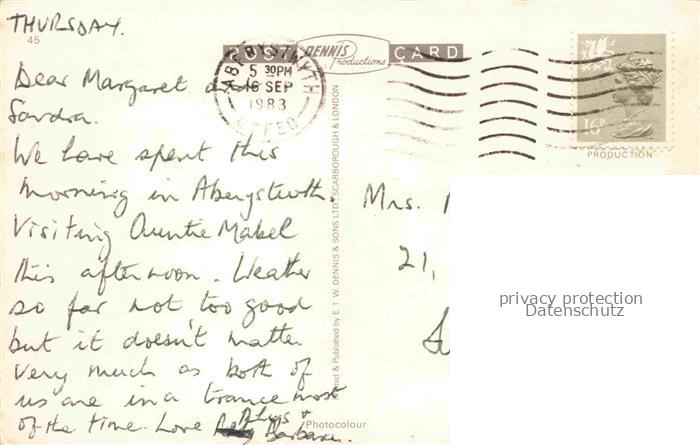 THURSDAY.
45
POST
DENNIS
Productions
CARD
Dear Margaret and
Sandra.
We have spent this
morning in Aberystwyth.
Visiting Auntie Mabel
this afternoon. Weather
so far not too good
but it doesn't matter
very much as both of
us are in a trance most
of the time. Love Rhys +
Barbara.
ABERYSTWYTH
5 30PM
16 SEP
1983
DYFED
16P
PRODUCTION
Mrs.
21,
Printed & Published by E. T. W. DENNIS & SONS LTD., SCARBOROUGH & LONDON
Photocolour
privacy protection
Datenschutz